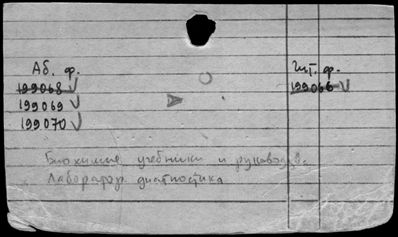 Аб. ф. Чит. ф.
199068 199066
199069
199070
Биохимия учебники и руководств.
Лаборатор диагностика